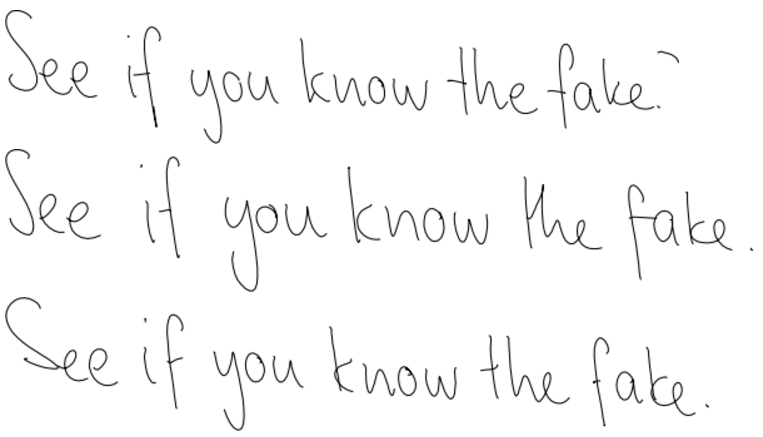 See if you know the fake?
See if you know the fake.
See if you know the fake.